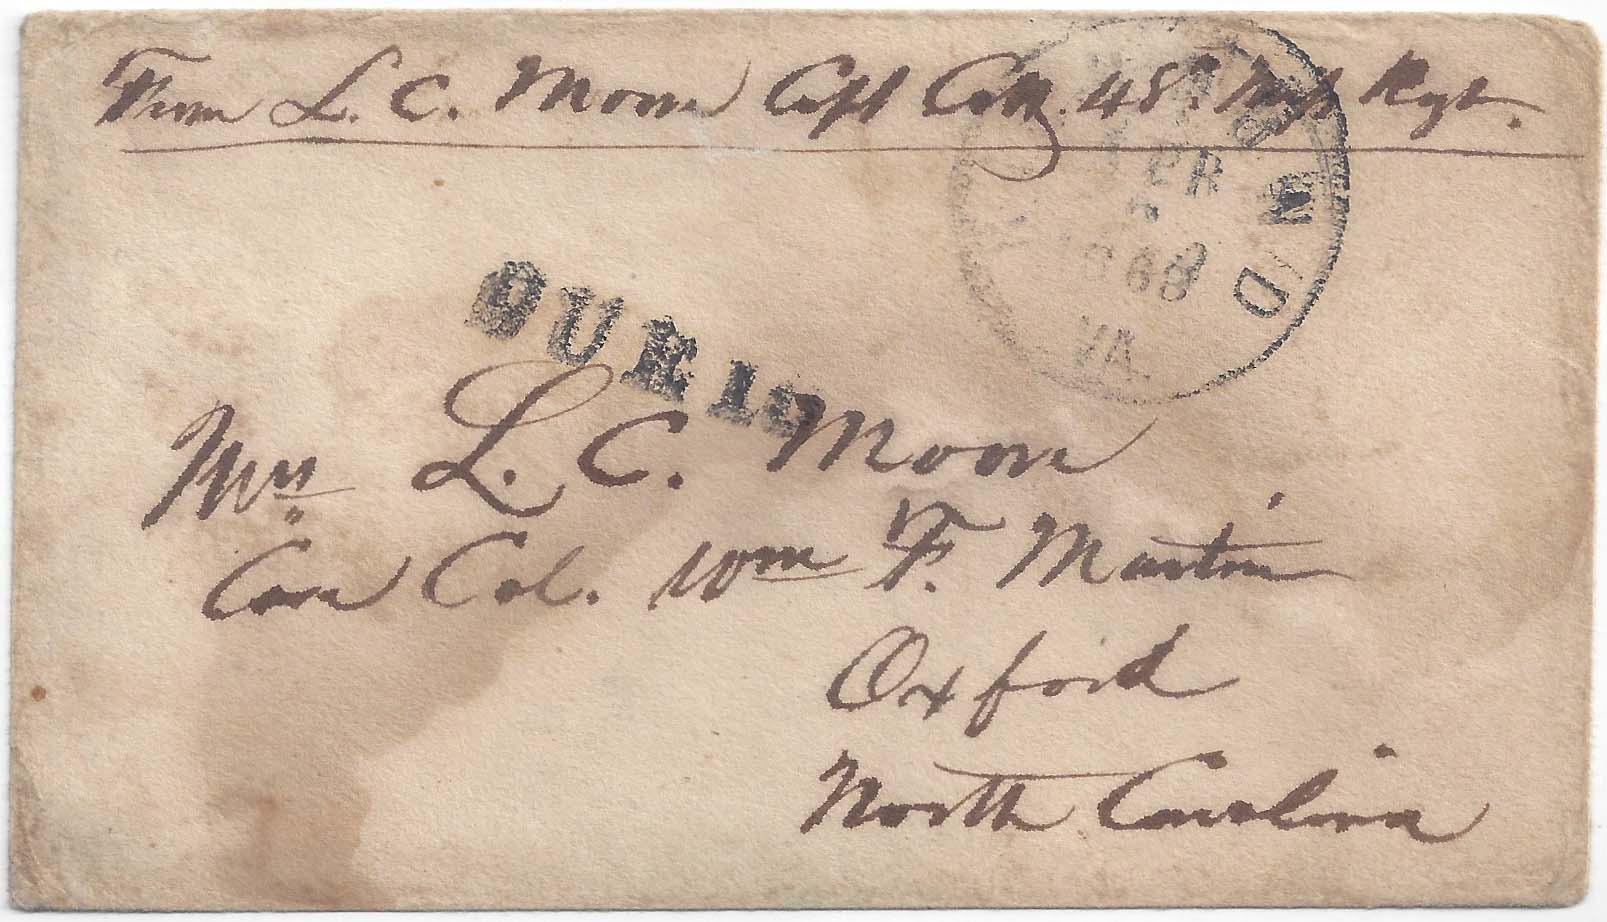 From L. C. Moore Capt Co. 48. Miss Regt.
RICHMOND
APR
1863
VA.
DUE 10
Mrs L. C. Moore
Care Col. Wm F. Martin
Oxford
North Carolina